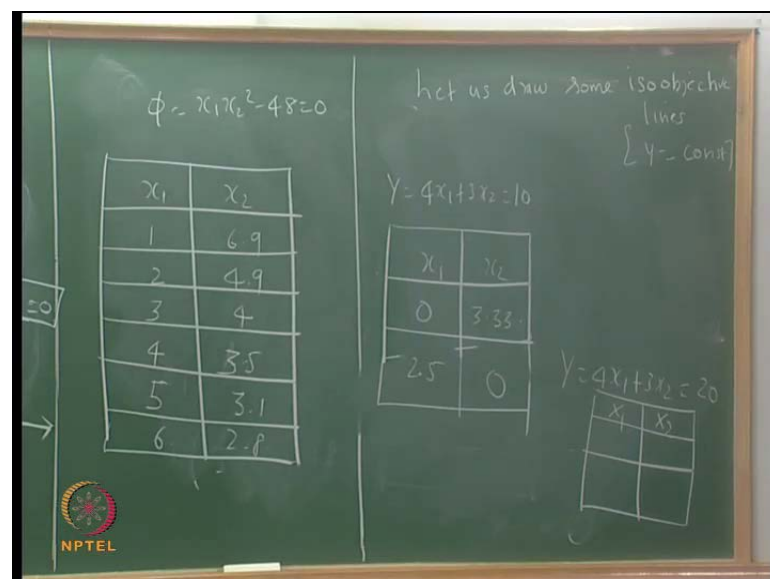 =0
ϕ = x₁x₂² - 48 = 0
x₁ x₂
1 6.9
2 4.9
3 4
4 3.5
5 3.1
6 2.8
Let us draw some isoobjective
lines
[Y = const]
Y = 4x₁+3x₂ = 10
x₁ x₂
0 3.33
2.5 0
Y = 4x₁+3x₂ = 20
x₁ x₂
NPTEL